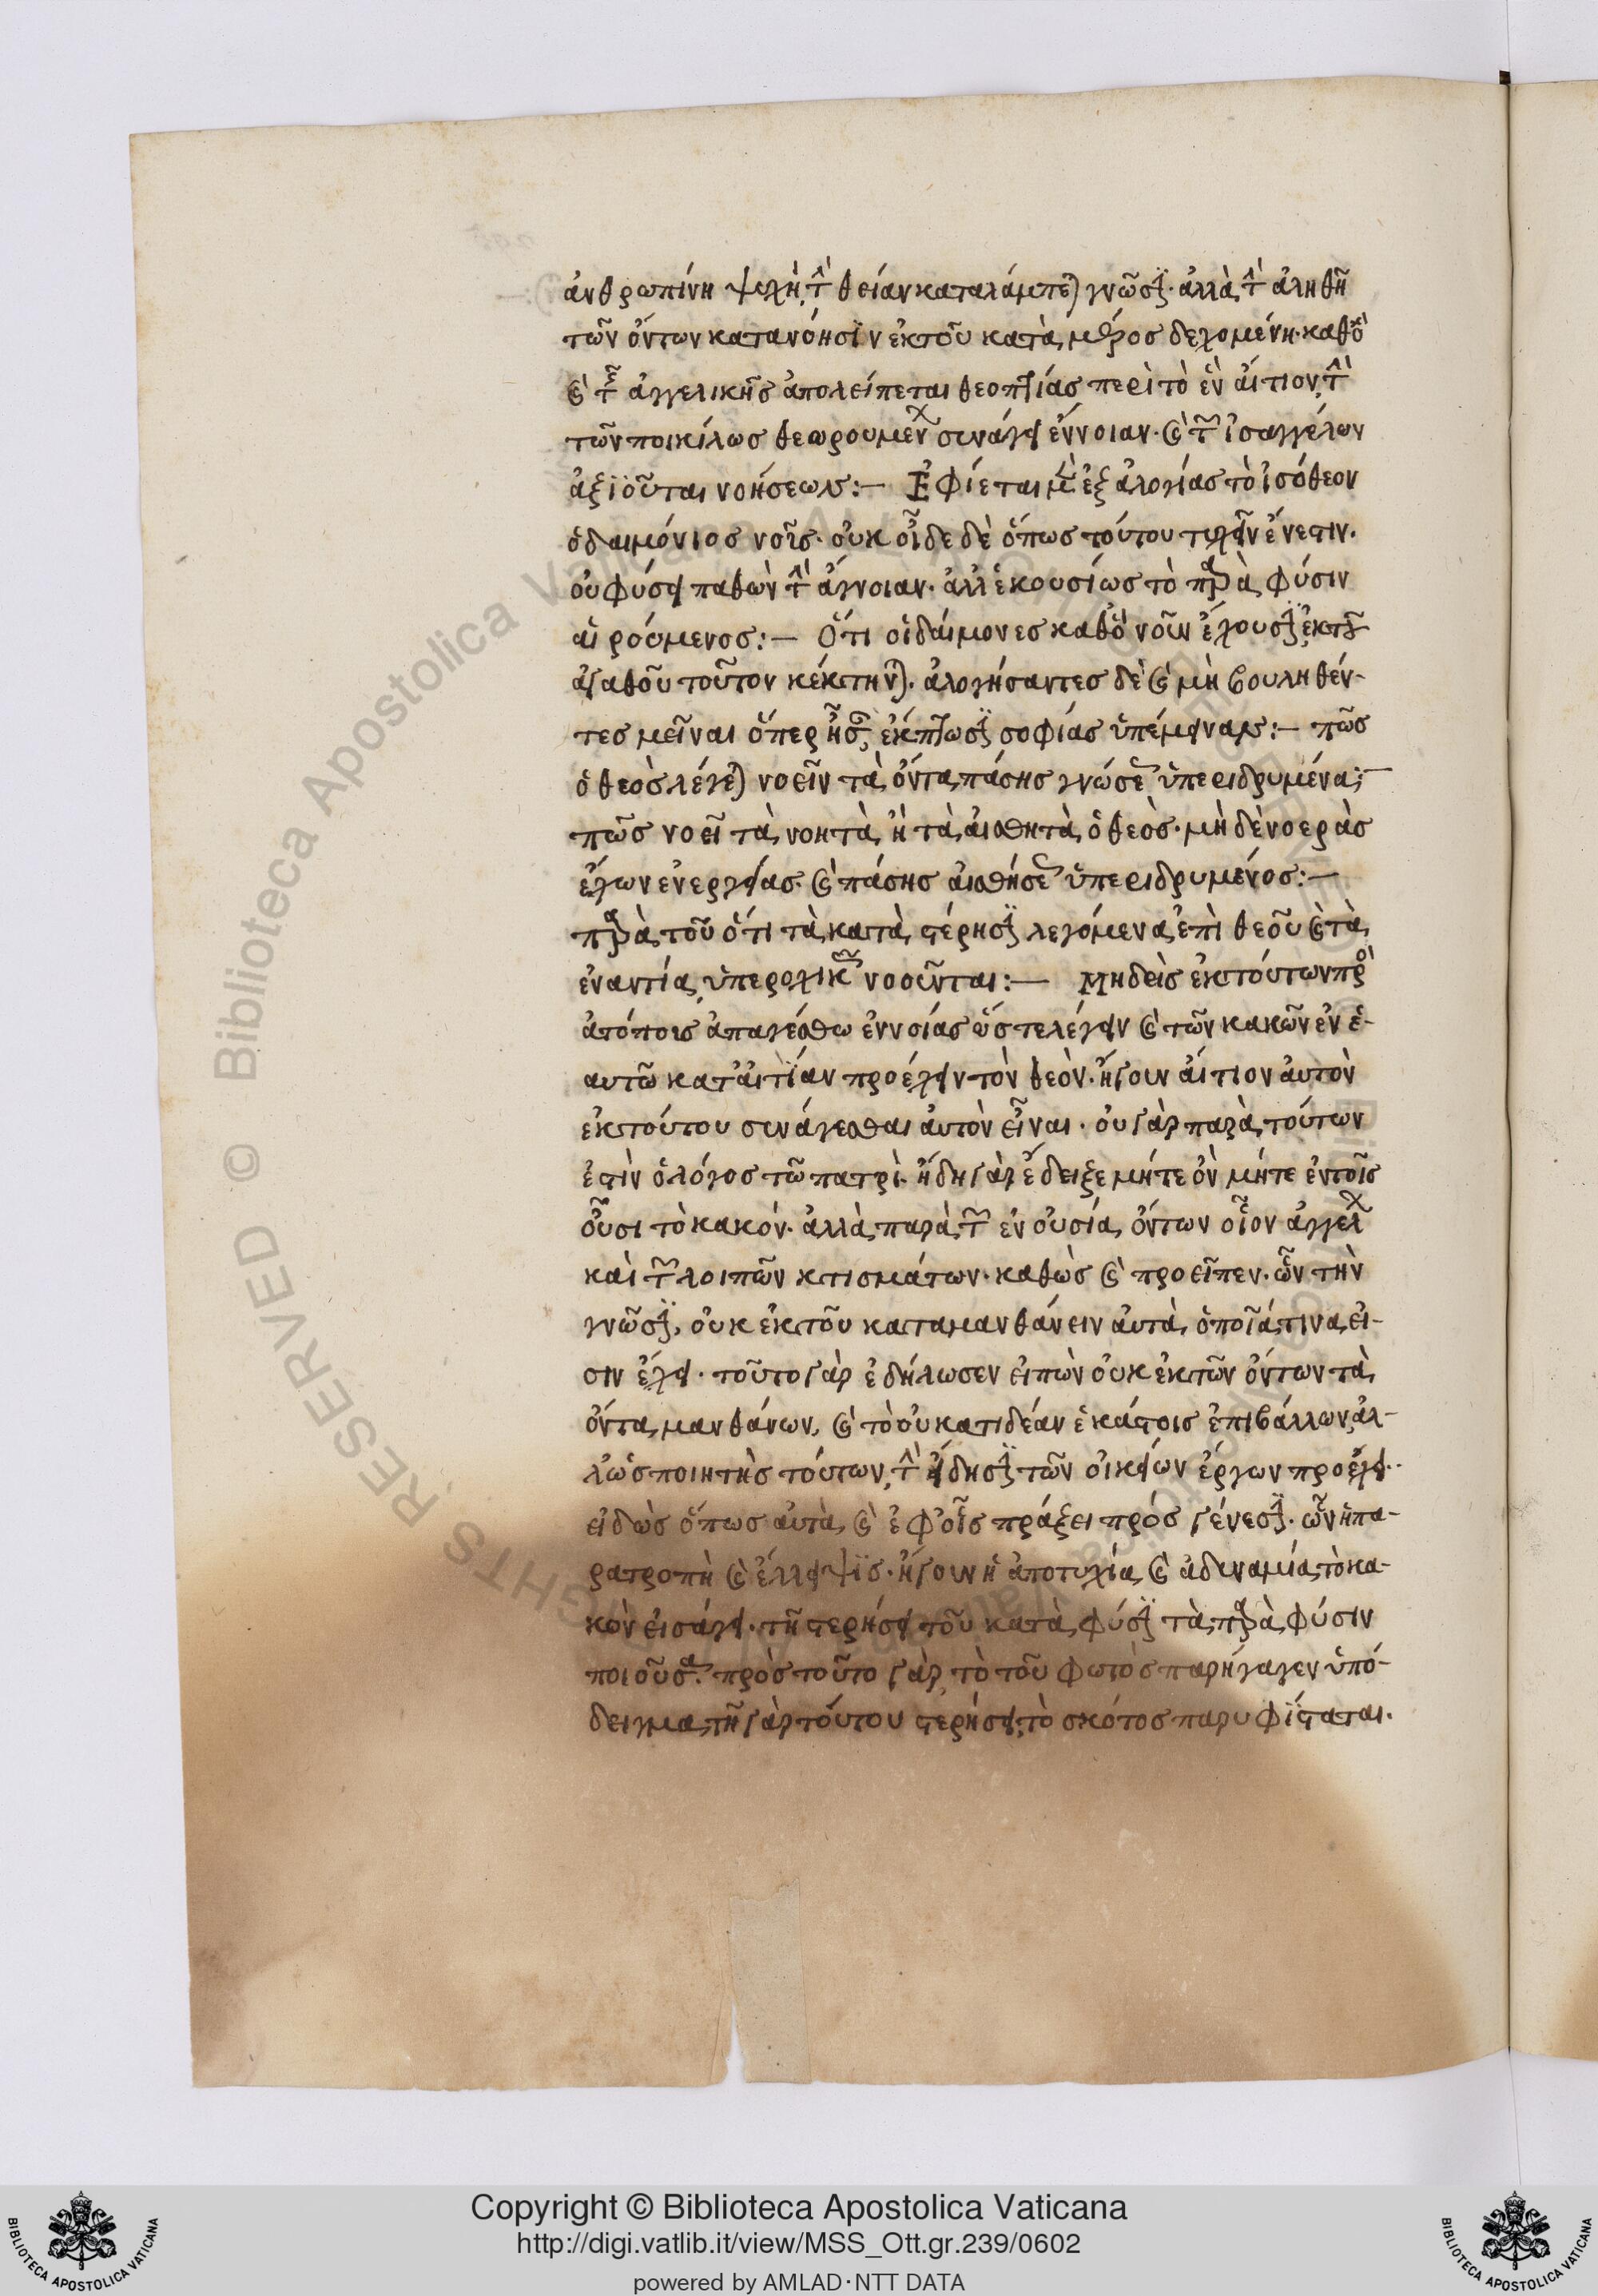 ἀνθρωπίνη ψυχὴ, τὴν θείαν καταλάμπεται γνῶσιν· ἀλλὰ τὴν ἀληθῆ
τῶν ὄντων κατανόησϊν ἐκτοῦ κατὰ μέρος δεχομένη· καθὸ
καὶ τῆς ἀγγελικῆς ἀπολείπεται θεοπτίας περὶ τὸ ἓν ἄιτιον, τὴν
τῶν ποικίλως θεωρουμένων συνάγει ἔννοιαν· καὶ τῶν ἰσαγγέλων
ἀξϊοῦται νοήσεως:— Ἐφίεται μὲν ἐξ ἀλογίας τὸ ἰσόθεον
ὁδαιμόνιος νοῦς· οὐκ οἶδε δὲ ὅπως τούτου τυχεῖν ἔνεστιν·
οὐ φύσει παθὼν τὴν ἄγνοιαν· ἀλλ' ἑκουσίως τὸ παρὰ φύσιν
αἱρούμενος:— Ὅτι οἱδαίμονες καθὸ νοῦν ἔχουσϊν, ἐκτοῦ
ἀγαθοῦ τοῦτον κέκτηνται· ἀλογήσαντες δὲ καὶ μὴ βουληθέν-
τες μεῖναι ὅπερ ἦσαν, ἔκπτωσϊν σοφίας ὑπέμειναν:— πῶς
ὁ θεὸς λέγεται νοεῖν τὰ ὄντα πάσης γνώσεως ὑπεριδρυμένα;—
πῶς νοεῖ τὰ νοητὰ ἢ τὰ ἀισθητὰ ὁ θεὸς· μὴ δὲ νοερὰς
ἔχων ἐνεργείας· καὶ πάσης ἀισθήσεως ὑπεριδρυμένος:—
παρὰ τοῦ ὅτι τὰ κατὰ στέρησϊν λεγόμενα ἐπὶ θεοῦ καὶ τὰ
ἐναντία, ὑπεροχικῶς νοοῦνται:— Μηδεὶς ἐκτούτων πρὸς
ἀτόποις ἀπαγέσθω ἐννοίας ὥστελέγειν καὶ τῶν κακῶν ἐν ἑ-
αυτῶ κατ' ἀιτϊαν προέχειν τὸν θεὸν· ἤγουν ἄιτιον ἀυτὸν
ἐκτούτου συνάγεσθαι ἀυτὸν εἶναι· οὐ γὰρ παρὰ τούτων
ἐστὶν ὁλόγος τῶ πατρὶ· ἤδη γὰρ ἔδειξε μήτε ὂν μήτε ἐντοῖς
οὖσι τὸ κακόν· ἀλλὰ παρὰ τῶν ἐν οὐσία ὄντων οἷον ἀγγέλων
καὶ τῶν λοιπῶν κτισμάτων· καθὼς καὶ προεῖπεν· ὧν τὴν
γνῶσϊν, οὐκ ἐκτοῦ καταμανθάνειν ἀυτὰ ὁποῖάτινα εἰ-
σιν ἔχει· τοῦτο γὰρ ἐδήλωσεν εἰπὼν οὐκ ἐκτῶν ὄντων τὰ
ὄντα μανθάνων, καὶ τὸ οὐ κατιδέαν ἑκάστοις ἐπιβάλλων, ἀλ-
λ' ὡςποιητὴς τούτων, τὴν εἴδησϊν τῶν οἰκείων ἔργων προέχει·
εἰδὼς ὅπως ἀυτὰ καὶ ἐφ' οἷς πράξει πρὸς γένεσϊν· ὧν ἡπα-
ρατροπὴ καὶ ἔλλειψϊς· ἤγουν ἡ ἀποτυχία καὶ ἀδυναμία, τὸ κα-
κὸν εἰσάγει· τῆ στερήσει τοῦ κατὰ φύσϊν τὰ παρὰ φύσιν
ποιοῦσα· πρὸς τοῦτο γὰρ τὸ τοῦ φωτὸς παρήγαγεν ὑπό-
δειγμα, τῆ γὰρ τούτου στερήσει, τὸ σκότος παρυφϊσταται.
Copyright © Biblioteca Apostolica Vaticana
http://digi.vatlib.it/view/MSS_Ott.gr.239/0602
powered by AMLAD·NTT DATA